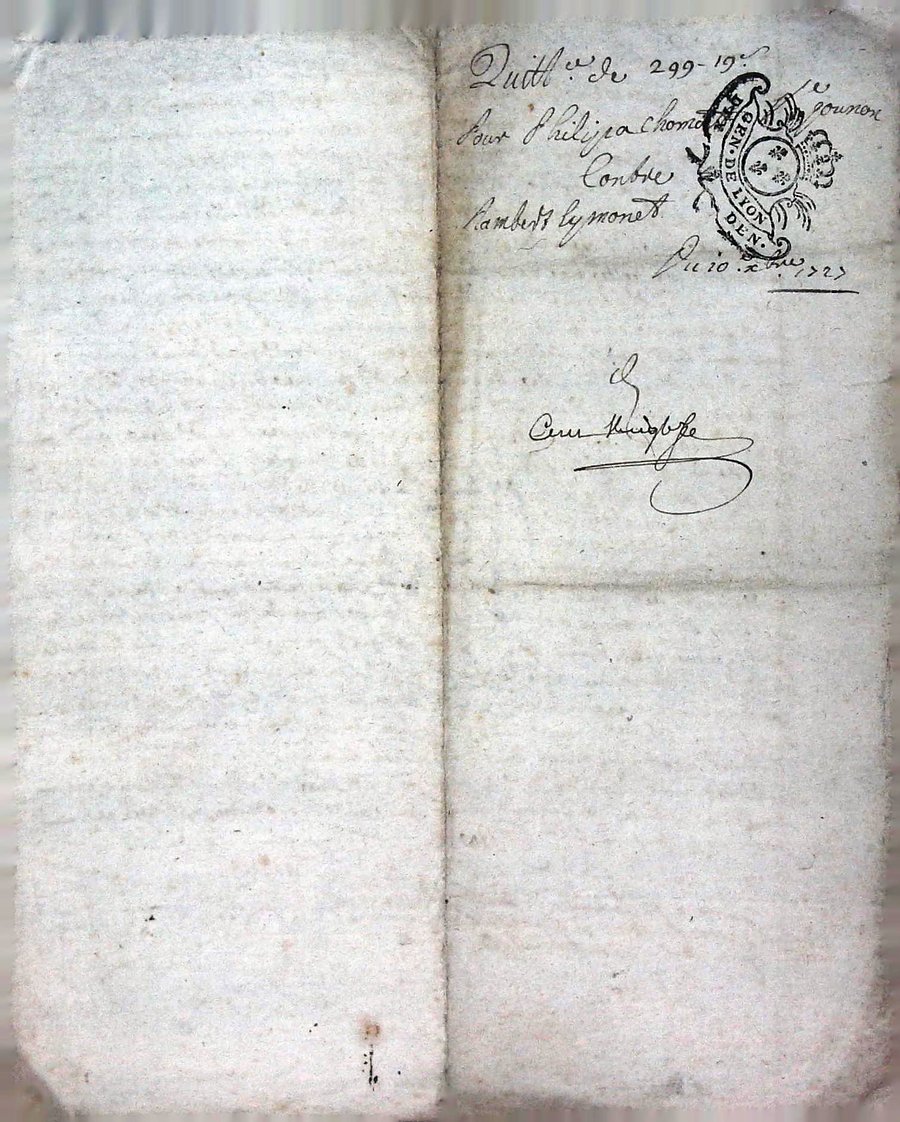 Quitt.ce de 299-19s
Pour Philippa Chom
Contre
Rambert Eymonet
Du 10 xbre 1727
GEN. DE LYON
DEN.